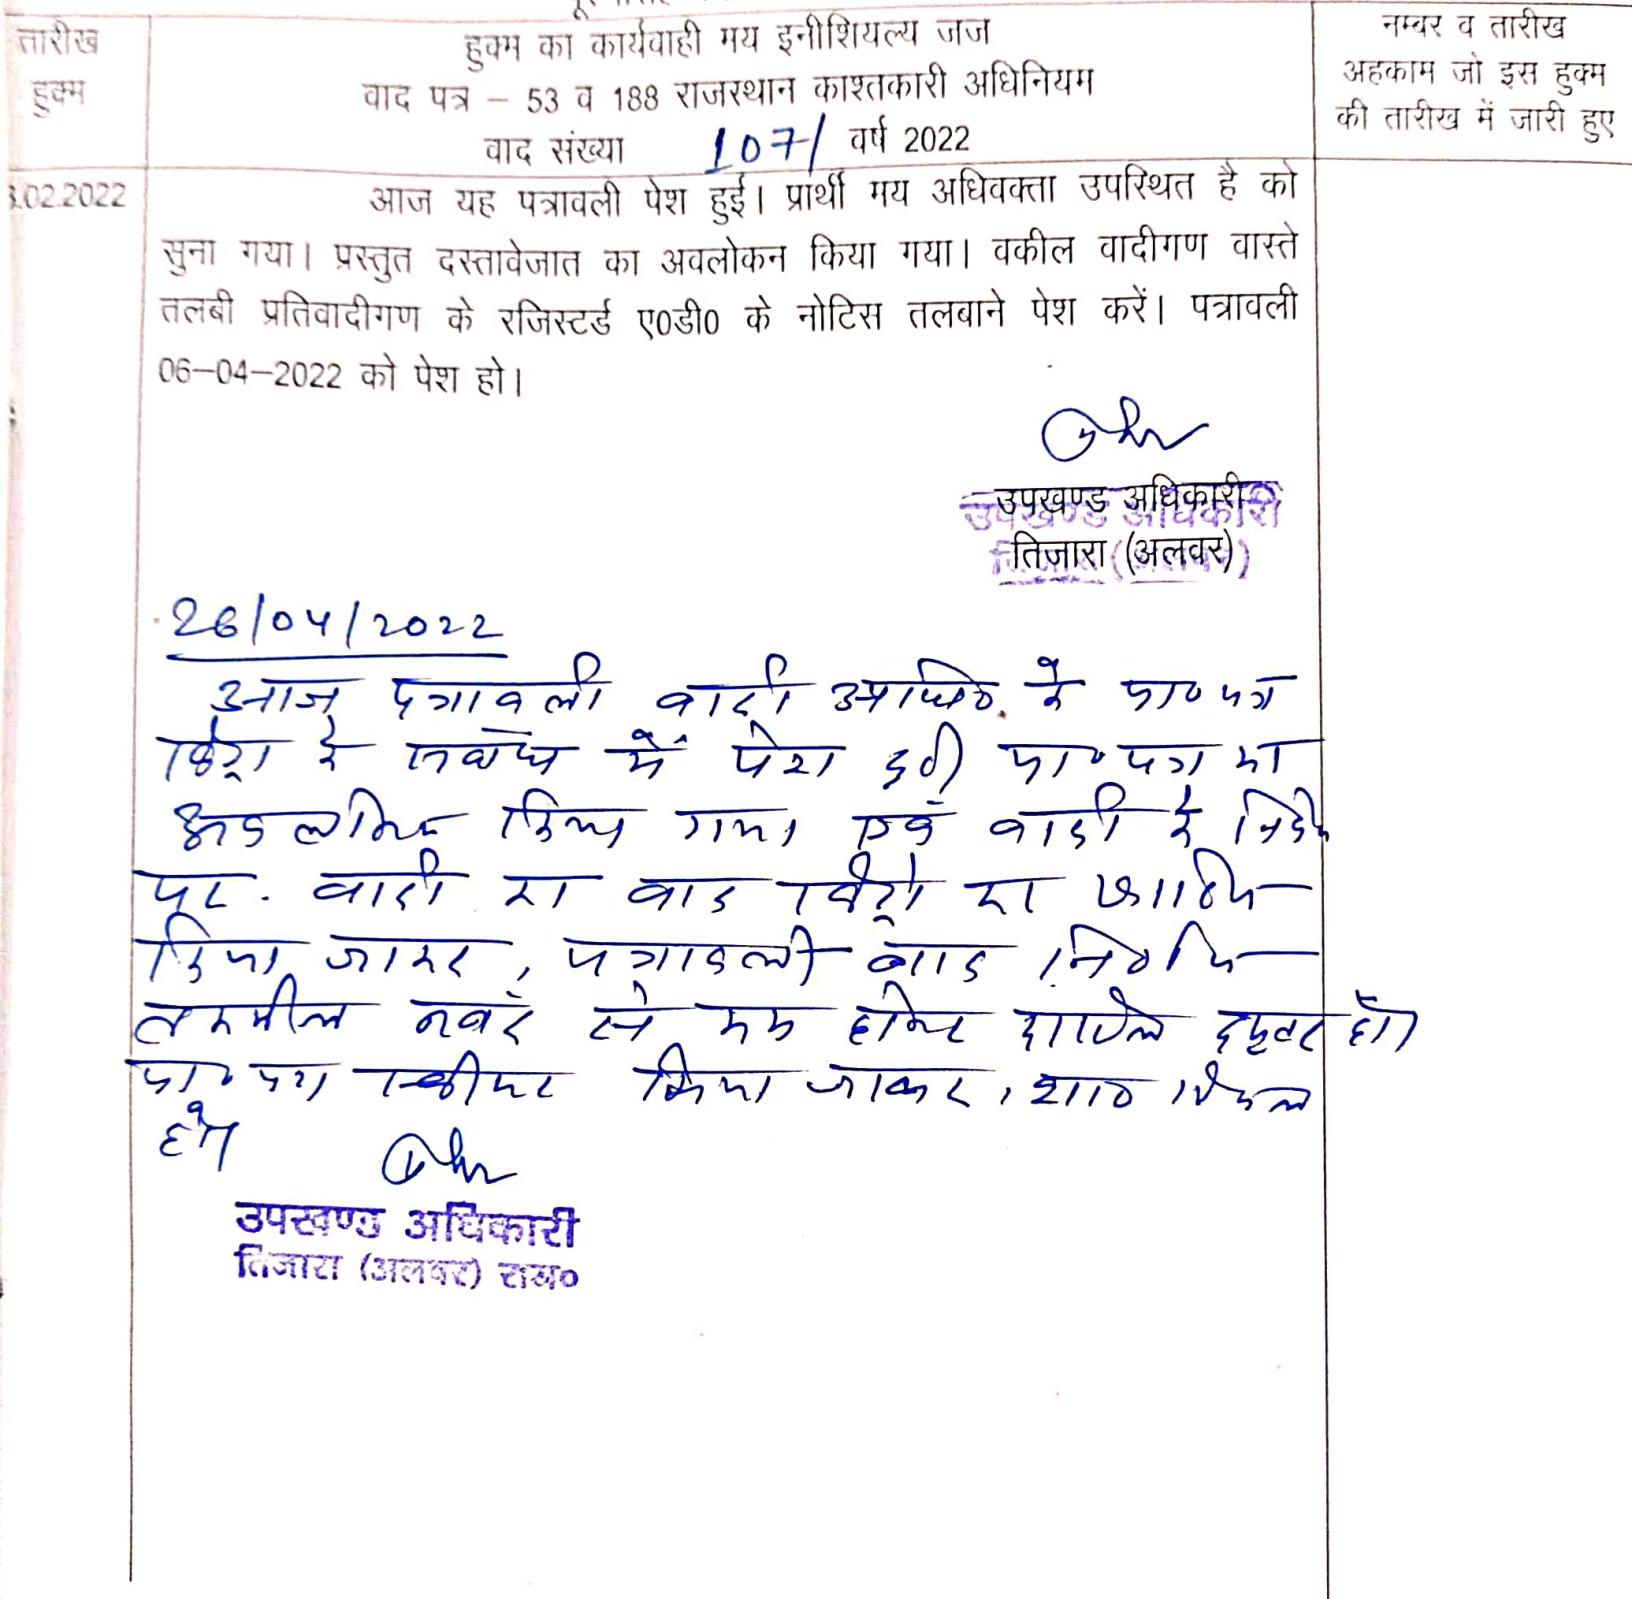 तारीख
हुक्म
हुक्म का कार्यवाही मय इनीशियल्य जज
वाद पत्र – 53 व 188 राजस्थान काश्तकारी अधिनियम
वाद संख्या 107/ वर्ष 2022
नम्बर व तारीख
अहकाम जो इस हुक्म
की तारीख में जारी हुए
.02.2022
आज यह पत्रावली पेश हुई। प्रार्थी मय अधिवक्ता उपस्थित है को
सुना गया। प्रस्तुत दस्तावेजात का अवलोकन किया गया। वकील वादीगण वास्ते
तलबी प्रतिवादीगण के रजिस्टर्ड ए0डी0 के नोटिस तलबाने पेश करें। पत्रावली
06–04–2022 को पेश हो।
उपखण्ड अधिकारी
तिजारा (अलवर)
उपखण्ड अधिकारी
26/04/2022
आज पत्रावली वादी के प्रा० पत्र
के संबंध में पेश हुयी प्रा० पत्र का
किया गया एवं वादी के
पर. वादी का वाद का
किया जाकर, पत्रावली बाद
नंबर से कम होकर दाखिल दफ्तर हो।
प्रा० पत्र स्वीकार किया जाकर, शा०
हो।
उपखण्ड अधिकारी
तिजारा (अलवर) राज०